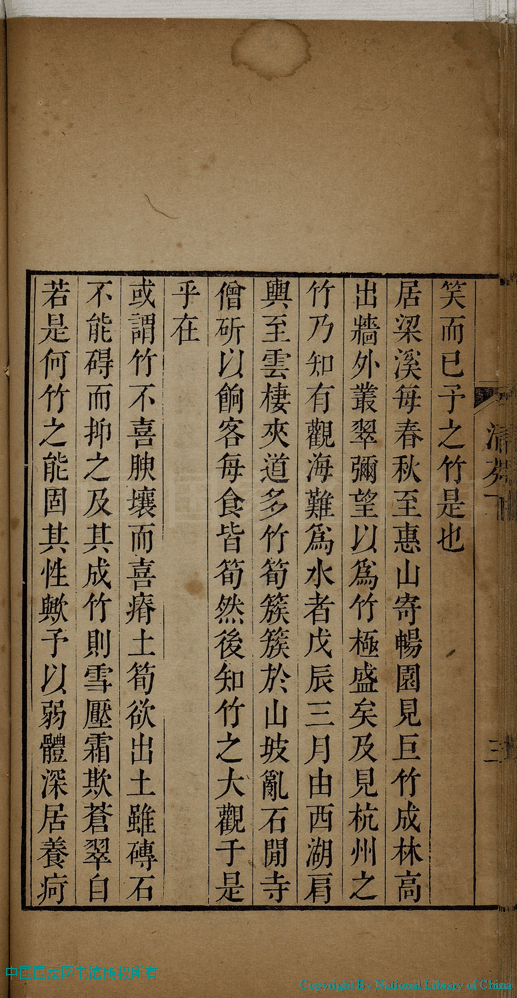 笑而已予之竹是也
居梁溪每春秋至惠山寄暢園見巨竹成林高
出牆外叢翠彌望以爲竹極盛矣及見杭州之
竹乃知有觀海難爲水者戊辰三月由西湖肩
輿至雲棲夾道多竹筍簇簇於山坡亂石閒寺
僧斫以餉客每食皆筍然後知竹之大觀于是
乎在
或謂竹不喜腴壤而喜瘠土筍欲出土雖磚石
不能礙而抑之及其成竹則雪壓霜欺蒼翠自
若是何竹之能固其性歟予以弱體深居養疴
三
Copyright By National Library of China